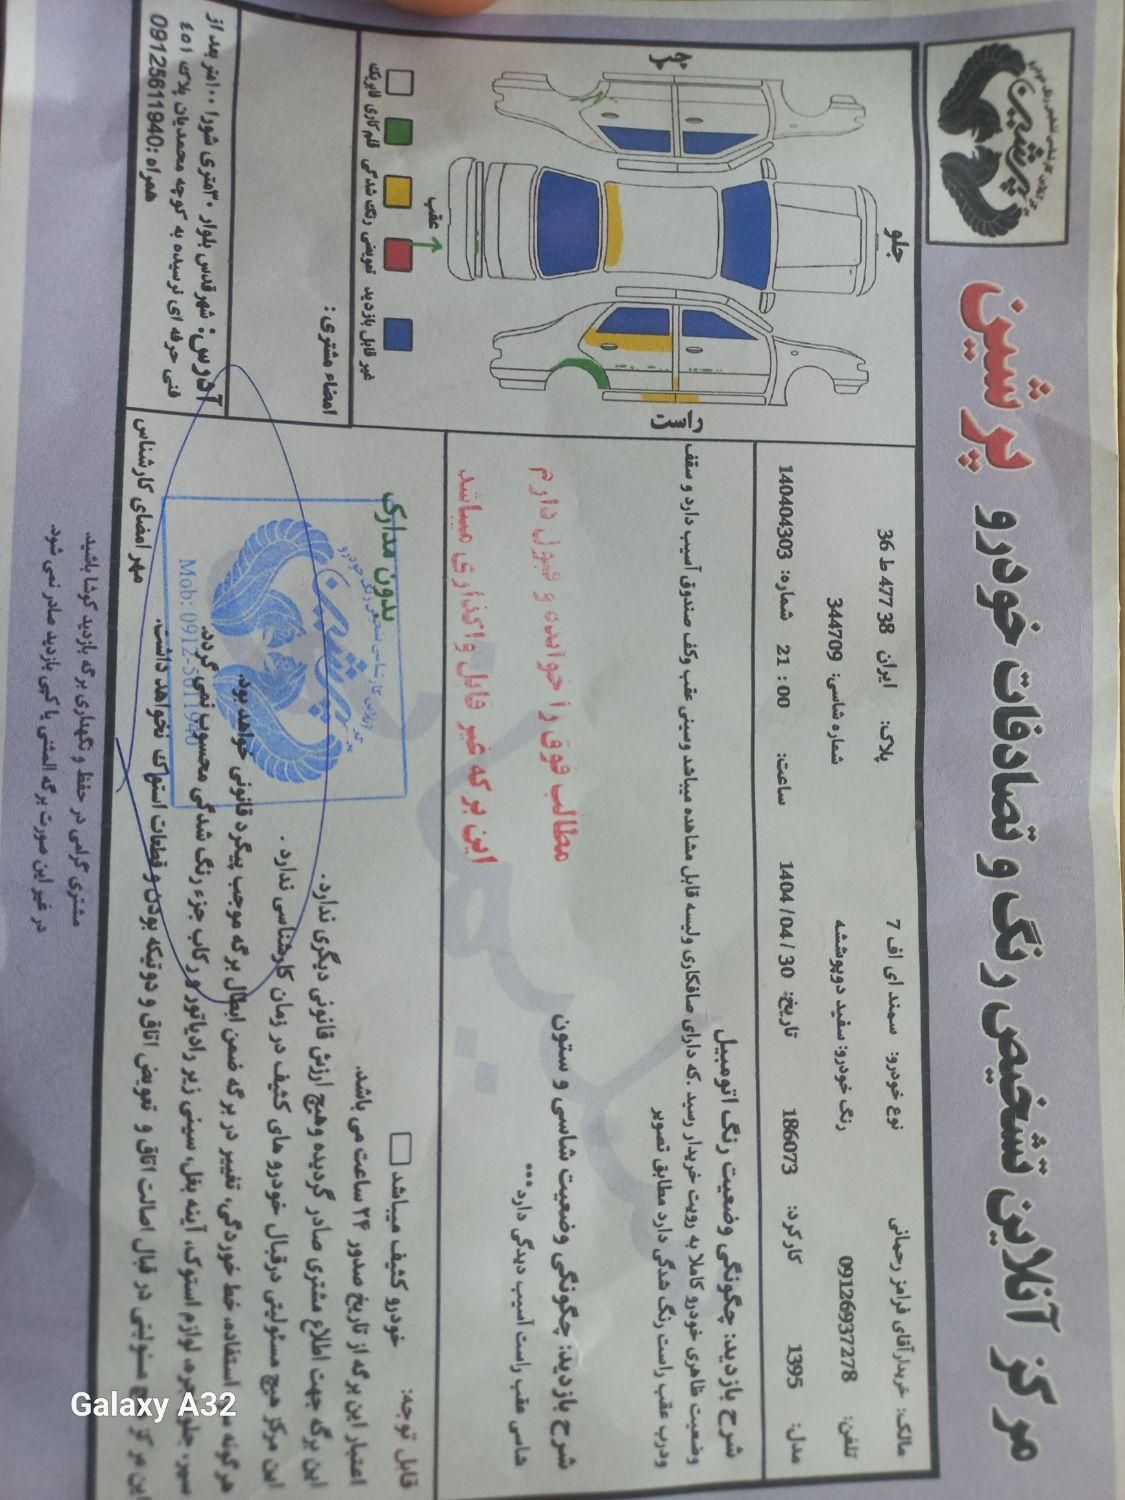 مرکز آنلاین تشخیص رنگ و تصادفات خودرو پرشین
پرشین
مالک: خریدار آقای فرامرز رحمانی
نوع خودرو: سمند ای اف 7
پلاک: ایران 38 477 ط 36
تلفن: 09126937278
رنگ خودرو: سفید دوپوششه
شماره شاسی: 344709
مدل: 1395
کارکرد: 186073
تاریخ: 1404 / 04 / 30
ساعت: 21 : 00
شماره: 140404303
شرح بازدید: چگونگی وضعیت رنگ اتومبیل
وضعیت ظاهری خودرو کاملا به رویت خریدار رسید .که دارای صافکاری ولیسه قابل مشاهده میباشد وسینی عقب وکف صندوق آسیب دارد و سقف
ودرب عقب راست رنگ شدگی دارد مطابق تصویر
شرح بازدید: چگونگی وضعیت شاسی و ستون
شاسی عقب راست آسیب دیدگی دارد***
مطالب فوق را خوانده و قبول دارم
این برگه غیر قابل واگذاری میباشد
جلو
چپ
راست
عقب
فابریک
قلم کاری
رنگ شدگی
تعویضی
غیر قابل بازدید
امضاء مشتری :
قابل توجه:
خودرو کثیف میباشد
بدون مدارک
اعتبار این برگه از تاریخ صدور ۲۴ ساعت می باشد.
این برگه جهت اطلاع مشتری صادر گردیده وهیچ ارزش قانونی دیگری ندارد.
این مرکز هیچ مسئولیتی درقبال خودرو های کثیف در زمان کارشناسی ندارد .
هرگونه استفاده، خط خوردگی، تغییر در برگه ضمن ابطال برگه موجب پیگرد قانونی خواهد بود.
سپر، جلو پنجره، لوازم استوک، آینه بغل، سینی زیر رادیاتور و رکاب جزء رنگ شدگی محسوب نمی گردد.
این مرکز هیچ مسئولیتی در قبال اصالت اتاق و تعویض اتاق و دوتیکه بودن و قطعات استوک نخواهد داشت.
پرشین
Mob: 0912-5611940
مهر امضای کارشناس
آدرس: شهرقدس بلوار ۳۰متری شورا ۱۰۰متر بعد از
فنی حرفه ای نرسیده به کوچه محمدیان پلاک ٤٥١
همراه :09125611940
مشتری گرامی در حفظ و نگهداری برگه بازدید کوشا باشید.
در غیر این صورت برگه المثنی یا کپی بازدید صادر نمی شود.
Galaxy A32